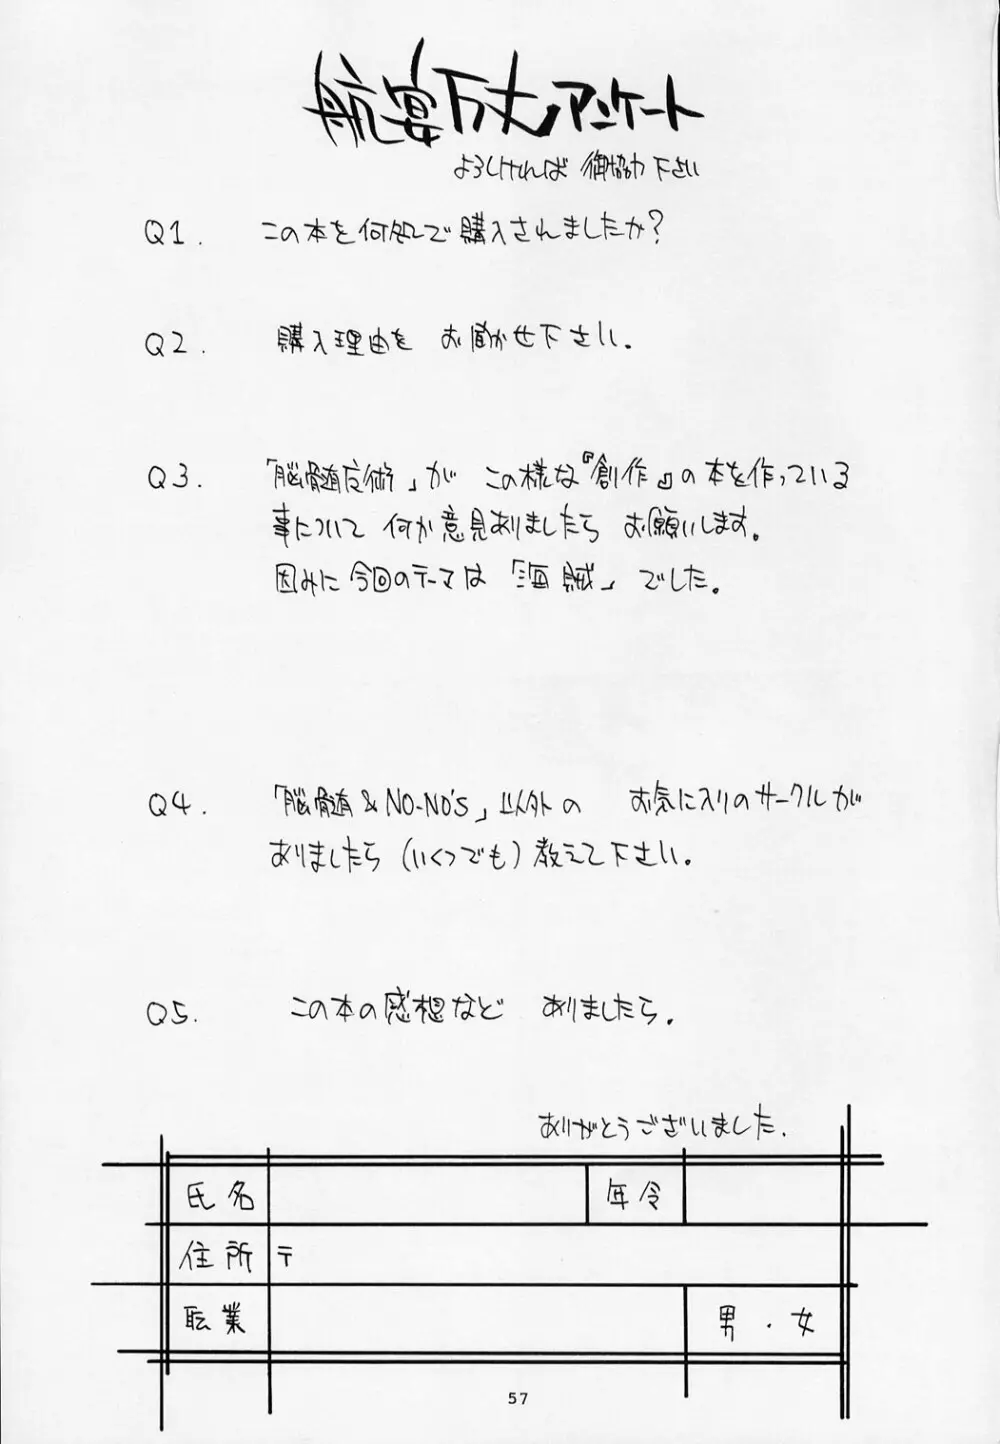 航宴万丈アンケート
よろしければ 御協力 下さい
Q1. この本を何処で購入されましたか?
Q2. 購入理由を お聞かせ下さい。
Q3. 「脳髄応術」が この様な『創作』の本を作っている
事について 何か意見ありましたら お願いします。
因みに今回のテーマは「海賊」でした。
Q4. 「脳髄&NO-NO'S」以外の お気に入りのサークルが
ありましたら(いくつでも)教えて下さい。
Q5. この本の感想など ありましたら.
ありがとうございました.
氏名 年令
住所 〒
職業 男・女
57